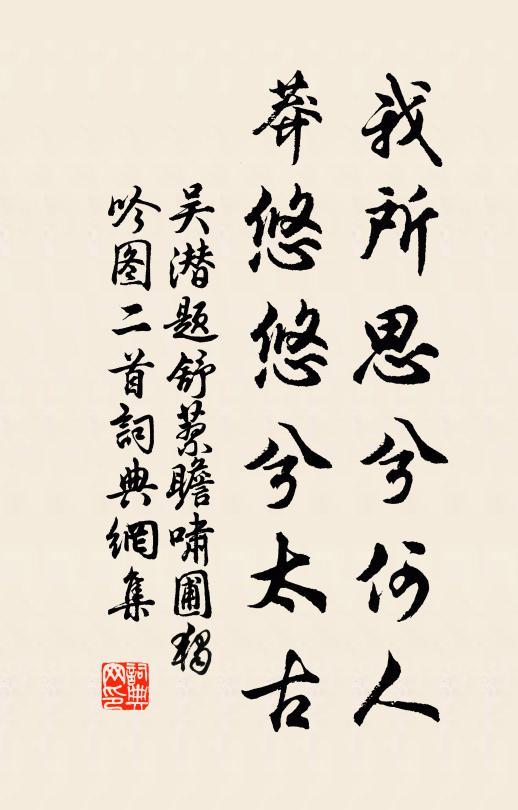 我所思兮何人
莽悠悠兮太古
吴潜题舒蓼瞻啸圃独
吟图二首詞典網集
詞典网印